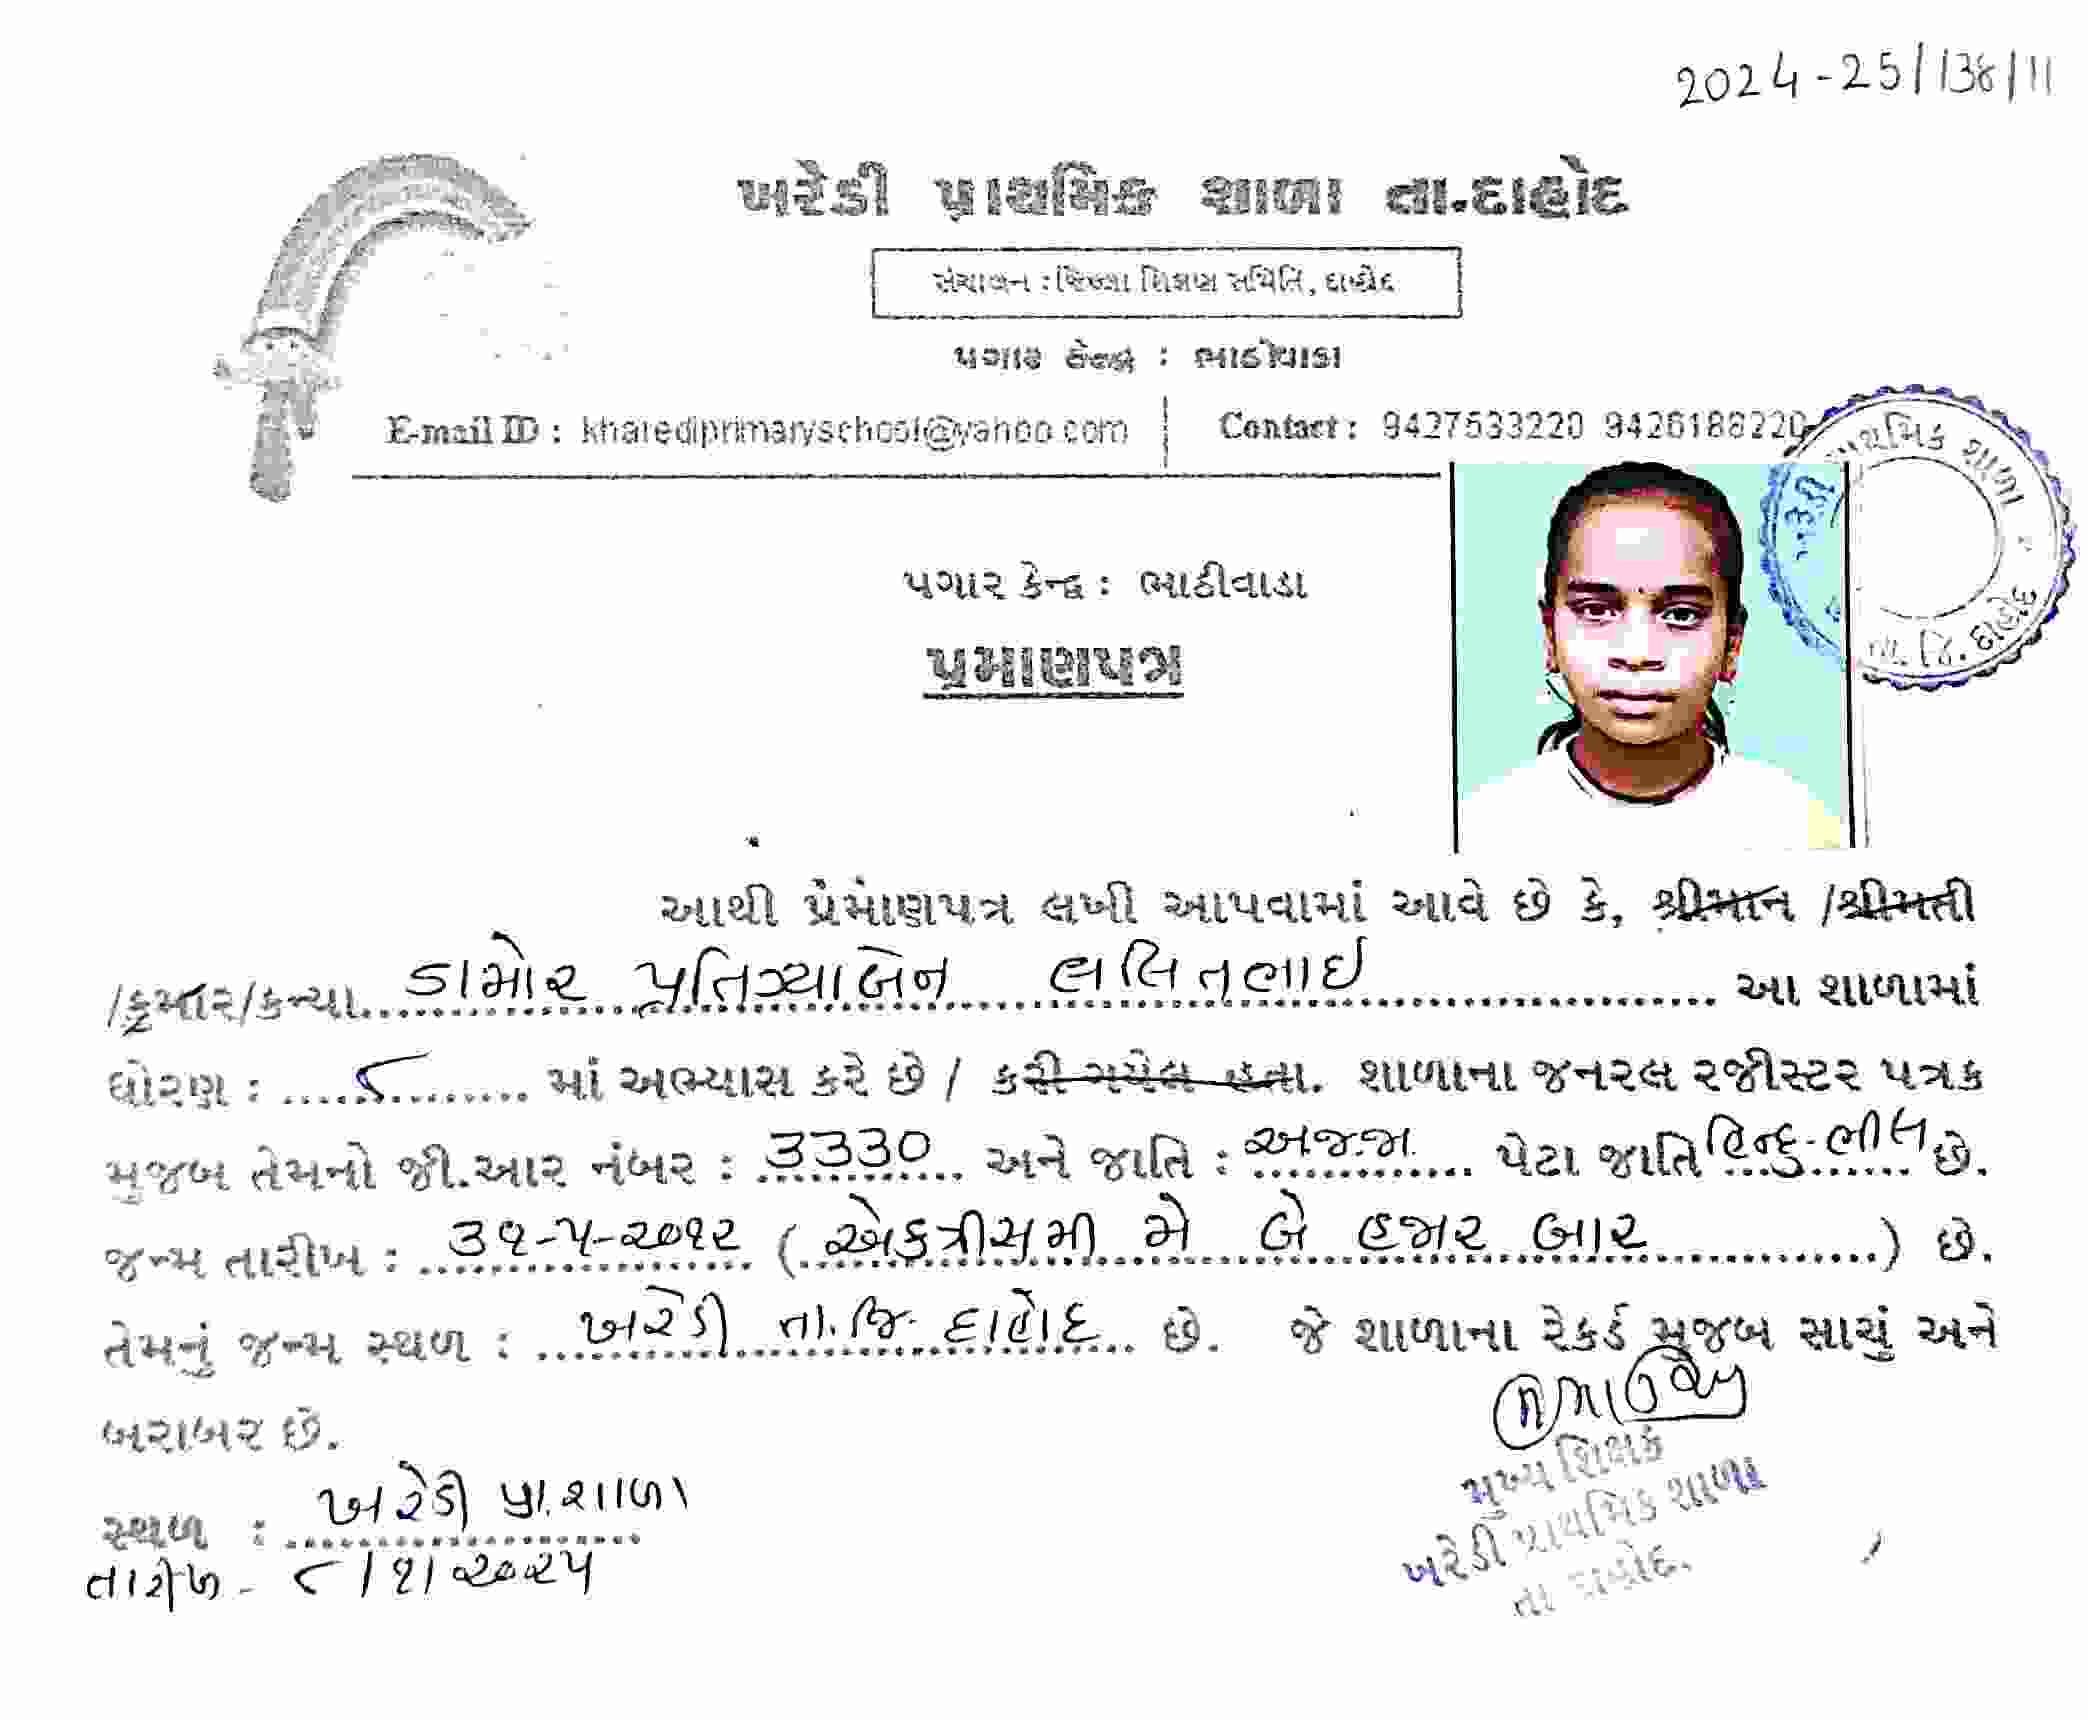 2024-25/138/11
ખરેડી પ્રાથમિક શાળા તા.દાહોદ
સંચાલન : જિલ્લા શિક્ષણ સમિતિ, દાહોદ
પગાર કેન્દ્ર : ભાઠીવાડા
E-mail ID : kharediprimaryschool@yahoo.com Contact : 9427533220 9426188220
પ્રાથમિક શાળા
તા. જિ. દાહોદ
પગાર કેન્દ્ર : ભાઠીવાડા
પ્રમાણપત્ર
આથી પ્રમાણપત્ર લખી આપવામાં આવે છે કે, શ્રીમાન /શ્રીમતી
/કુમાર/કન્યા ડામોર પ્રતિગ્યાબેન લલિતભાઇ આ શાળામાં
ધોરણ : ૮ માં અભ્યાસ કરે છે / કરી ગયેલ હતા. શાળાના જનરલ રજીસ્ટર પત્રક
મુજબ તેમનો જી.આર નંબર : 3330 અને જાતિ : અ.જ.જા. પેટા જાતિ હિન્દુ-ભીલ છે.
જન્મ તારીખ : ૩૧-૫-૨૦૧૨ (એકત્રીસમી મે બે હજાર બાર) છે.
તેમનું જન્મ સ્થળ : ખરેડી તા.જિ. દાહોદ છે. જે શાળાના રેકર્ડ મુજબ સાચું અને
બરાબર છે.
સ્થળ : ખરેડી પ્રા.શાળા
તારીખ - ૮/૧/૨૦૨૫
મુખ્ય શિક્ષક
ખરેડી પ્રાથમિક શાળા
તા દાહોદ.